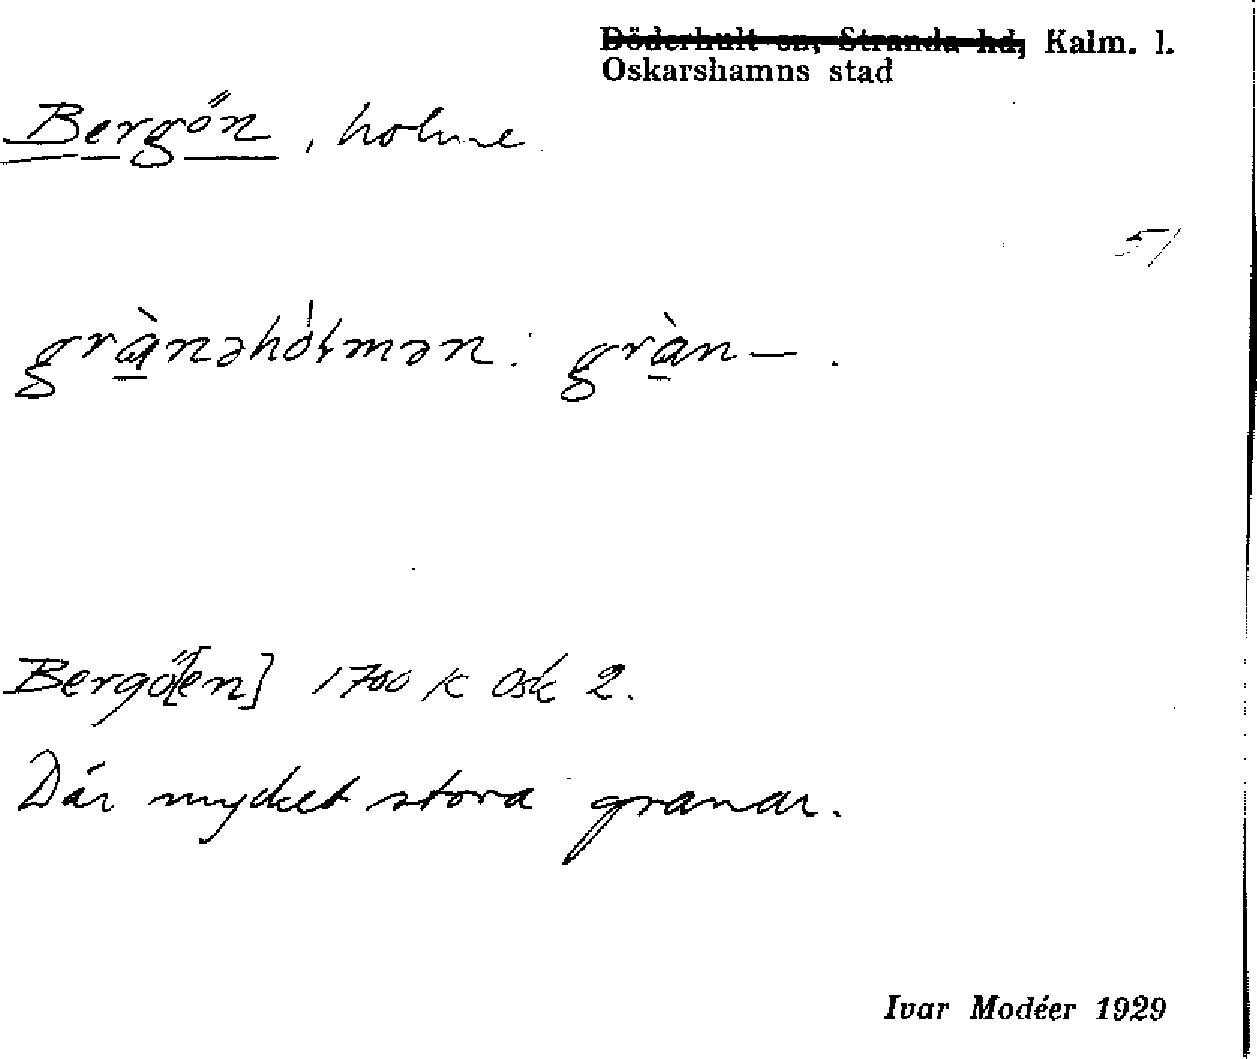 Döderhult sn, Stranda hd, Kalm. l.
Oskarshamns stad
Bergön, holme
51
grà̱nəhòłmən: grà̱n—.
Bergö[en] 1700 K Osk 2.
Där mycket stora granar.
Ivar Modéer 1929